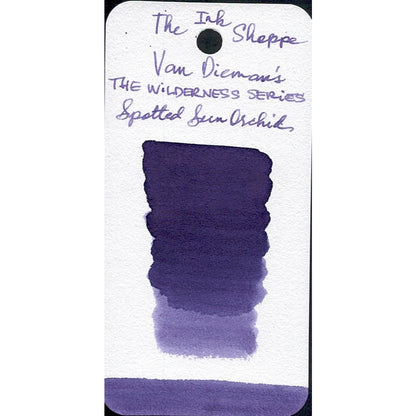 The Ink Shoppe
Van Dieman's
THE WILDERNESS SERIES
Spotted Sun Orchid